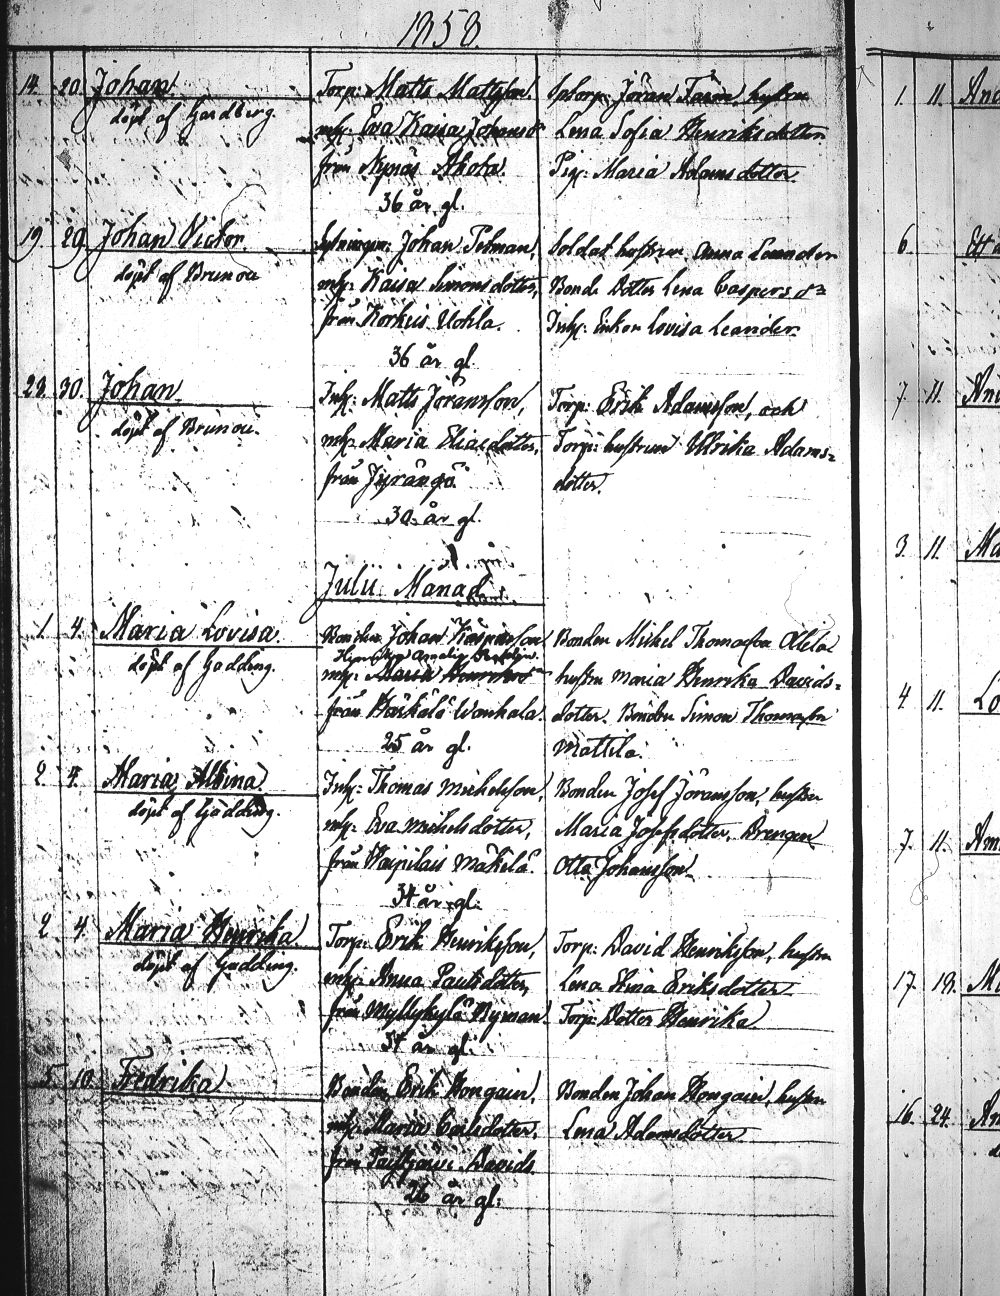 1858.
14. 20. Johan
döpt af Gardberg.
Torp: Matts Mattsson,
mh: Eva Kaisa Johansdr
från Nynäs Ahola.
36 år gl.
Sptorp: Jöran Farin, hustru
Lena Sofia Henriksdotter.
Pig: Maria Adamsdotter.
19. 29. Johan Victor
döpt af Brunou
Johan Pelman,
mh: Kaisa Simonsdotter,
från Korkis Uohla.
36 år gl.
Soldat hustrun Anna Leander
Bonde Dotter Lena Caspersdr
Inh: Enkan Lovisa Leander.
23. 30. Johan
döpt af Brunou.
Inh: Matts Jöransson,
mh: Maria Eliasdotter,
från Jyrängö.
30 år gl.
Torp: Erik Adamsson, och
Torp: hustrun Ulrika Adams-
dotter.
Julii Månad
1. 4. Maria Lovisa
döpt af Gadding.
Bonden Johan Kasparsson
mh: Maria Henriksdr
från Härkälä Wanhala.
25 år gl.
Bonden Michel Thomasson Ollila
hustru Maria Henrika Davids-
dotter. Bonden Simon Thomasson
Mattila.
2. 4. Maria Albina
döpt af Gadding.
Inh: Thomas Michelsson,
mh: Eva Michelsdotter,
från Mäkelä.
34 år gl.
Bonden Josef Jöransson, hustru
Maria Josefsdotter. Drengen
Otto Johansson.
2 4. Maria Henrika
döpt af Gadding.
Torp: Erik Henriksson,
mh: Anna Paulsdotter,
från Myllykylä Nyman.
34 år gl.
Torp: David Henriksson, hustru
Lena Stina Eriksdotter
Torp: Dotter Henrika.
5. 10 Fredrika
Bonden Erik Hongain,
mh: Maria Carlsdotter,
från Davids.
26 år gl.
Bonden Johan Hongain, hustru
Lena Adamsdotter
1. 11.
6.
7. 11.
3. 11.
4 11.
7. 11.
17. 18.
16. 24.